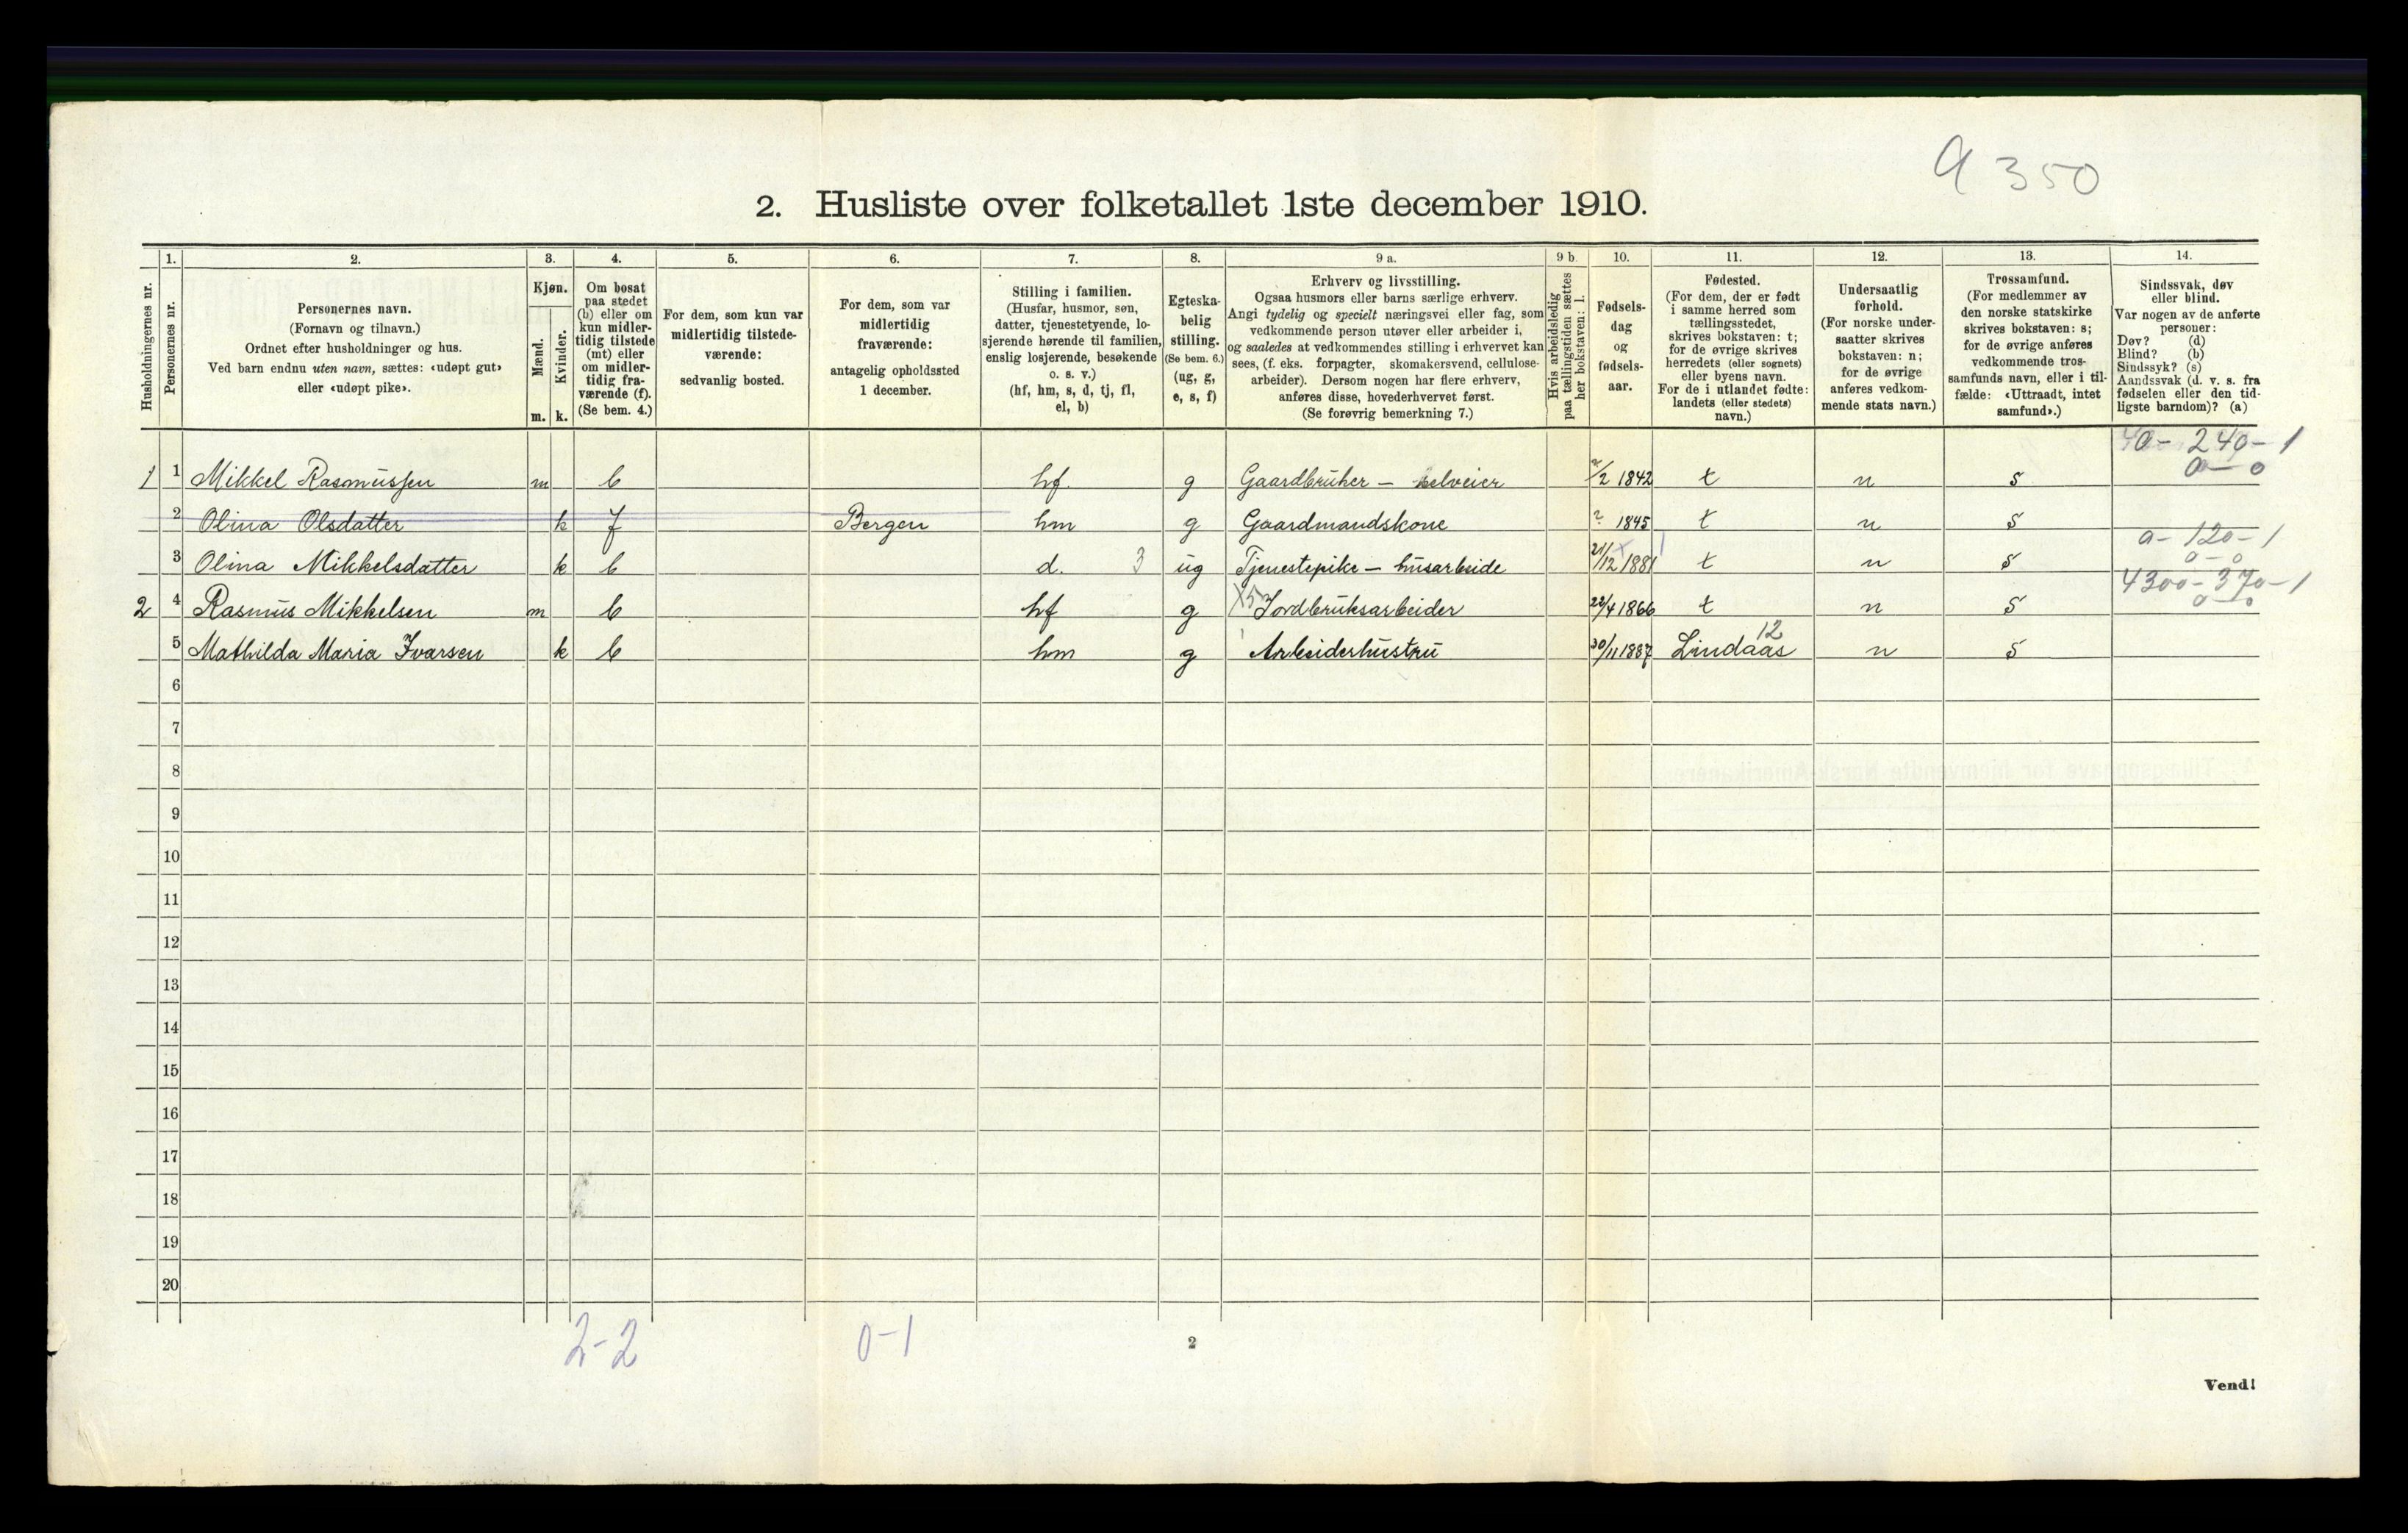 9 350
2. Husliste over folketallet 1ste december 1910.
1. 2. 3. 4. 5. 6. 7. 8. 9 a. 9 b. 10. 11. 12. 13. 14.
Husholdningernes nr.
Personernes nr.
Personernes navn.
(Fornavn og tilnavn.)
Ordnet efter husholdninger og hus.
Ved barn endnu uten navn, sættes: «udøpt gut»
eller «udøpt pike».
Kjøn.
Mænd.
Kvinder.
m. k.
Om bosat
paa stedet
(b) eller om
kun midler-
tidig tilstede
(mt) eller
om midler-
tidig fra-
værende (f).
(Se bem. 4.)
For dem, som kun var
midlertidig tilstede-
værende:
sedvanlig bosted.
For dem, som var
midlertidig
fraværende:
antagelig opholdssted
1 december.
Stilling i familien.
(Husfar, husmor, søn,
datter, tjenestetyende, lo-
sjerende hørende til familien,
enslig losjerende, besøkende
o. s. v.)
(hf, hm, s, d, tj, fl,
el, b)
Egteska-
belig
stilling.
(Se bem. 6.)
(ug, g,
e, s, f)
Erhverv og livsstilling.
Ogsaa husmors eller barns særlige erhverv.
Angi tydelig og specielt næringsvei eller fag, som
vedkommende person utøver eller arbeider i,
og saaledes at vedkommendes stilling i erhvervet kan
sees, (f. eks. forpagter, skomakersvend, cellulose-
arbeider). Dersom nogen har flere erhverv,
anføres disse, hovederhvervet først.
(Se forøvrig bemerkning 7.)
Hvis arbeidsledig
paa tællingstiden sættes
her bokstaven: l.
Fødsels-
dag
og
fødsels-
aar.
Fødested.
(For dem, der er født
i samme herred som
tællingsstedet,
skrives bokstaven: t;
for de øvrige skrives
herredets (eller sognets)
eller byens navn.
For de i utlandet fødte:
landets (eller stedets)
navn.)
Undersaatlig
forhold.
(For norske under-
saatter skrives
bokstaven: n;
for de øvrige
anføres vedkom-
mende stats navn.)
Trossamfund.
(For medlemmer av
den norske statskirke
skrives bokstaven: s;
for de øvrige anføres
vedkommende tros-
samfunds navn, eller i til-
fælde: «Uttraadt, intet
samfund».)
Sindssvak, døv
eller blind.
Var nogen av de anførte
personer:
Døv? (d)
Blind? (b)
Sindssyk? (s)
Aandssvak (d. v. s. fra
fødselen eller den tid-
ligste barndom)? (a)
240-1
0-0
1 1 Mikkel Rasmussen m b hf. g Gaardbruker - selveier /2 1842 t n s
2 Olina Olsdatter k f Bergen hm g Gaardmandskone ? 1845 t n s
a-120-1
0-0
3 Olina Mikkelsdatter k b d. 3 ug Tjenestepike - husarbeide 21/12 1881 t n s
4300-370-1
0-0
2 4 Rasmus Mikkelsen m b hf g Jordbruksarbeider 22/4 1866 t n s
12
5 Mathilda Maria Ivarsen k b hm g Arbeiderhustru 30/11 1887 Lindaas n s
6
7
8
9
10
11
12
13
14
15
16
17
18
19
20
2-2 0-1
2
Vend!